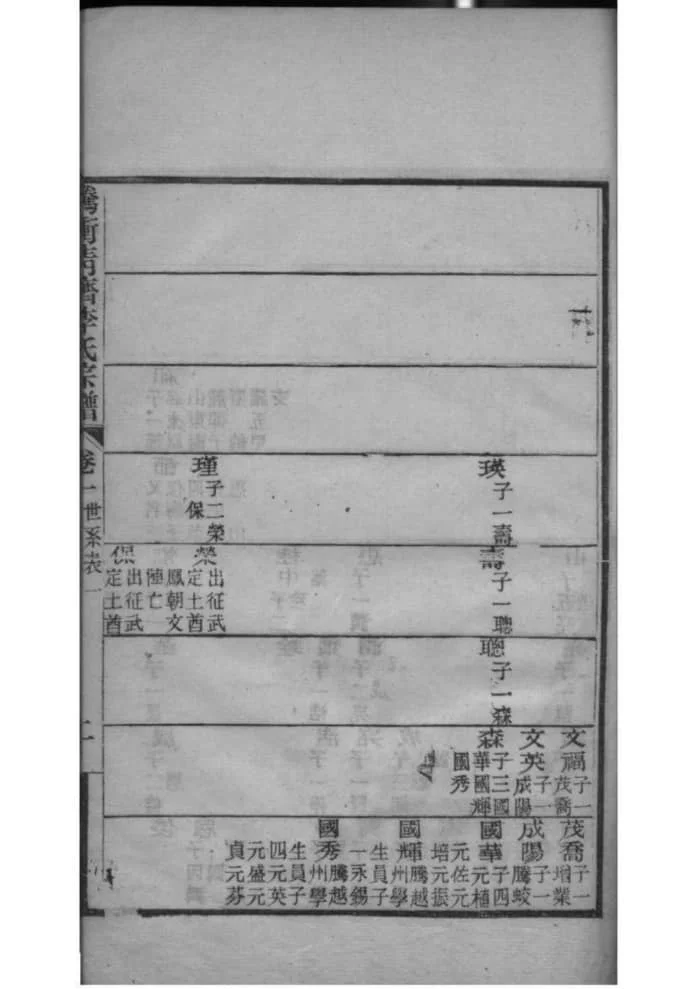 瑛
子一壽
瑾
子二榮
保
壽
子一聰
榮
出征武
定土酋
鳳朝文
陣亡
保
出征武
定土酋
聰
子一森
文福
子一
茂喬
文英
子一
成陽
森
子三國
華國輝
國秀
茂喬
子一
增業
成陽
子一
騰蛟
國華
子四
元植
元佐元
培元振
國輝
騰越
州學
生員子
一永錫
國秀
騰越
州學
生員子
四元英
元盛元
貞元芬
騰衝青齊李氏宗譜
卷一世系表一
二